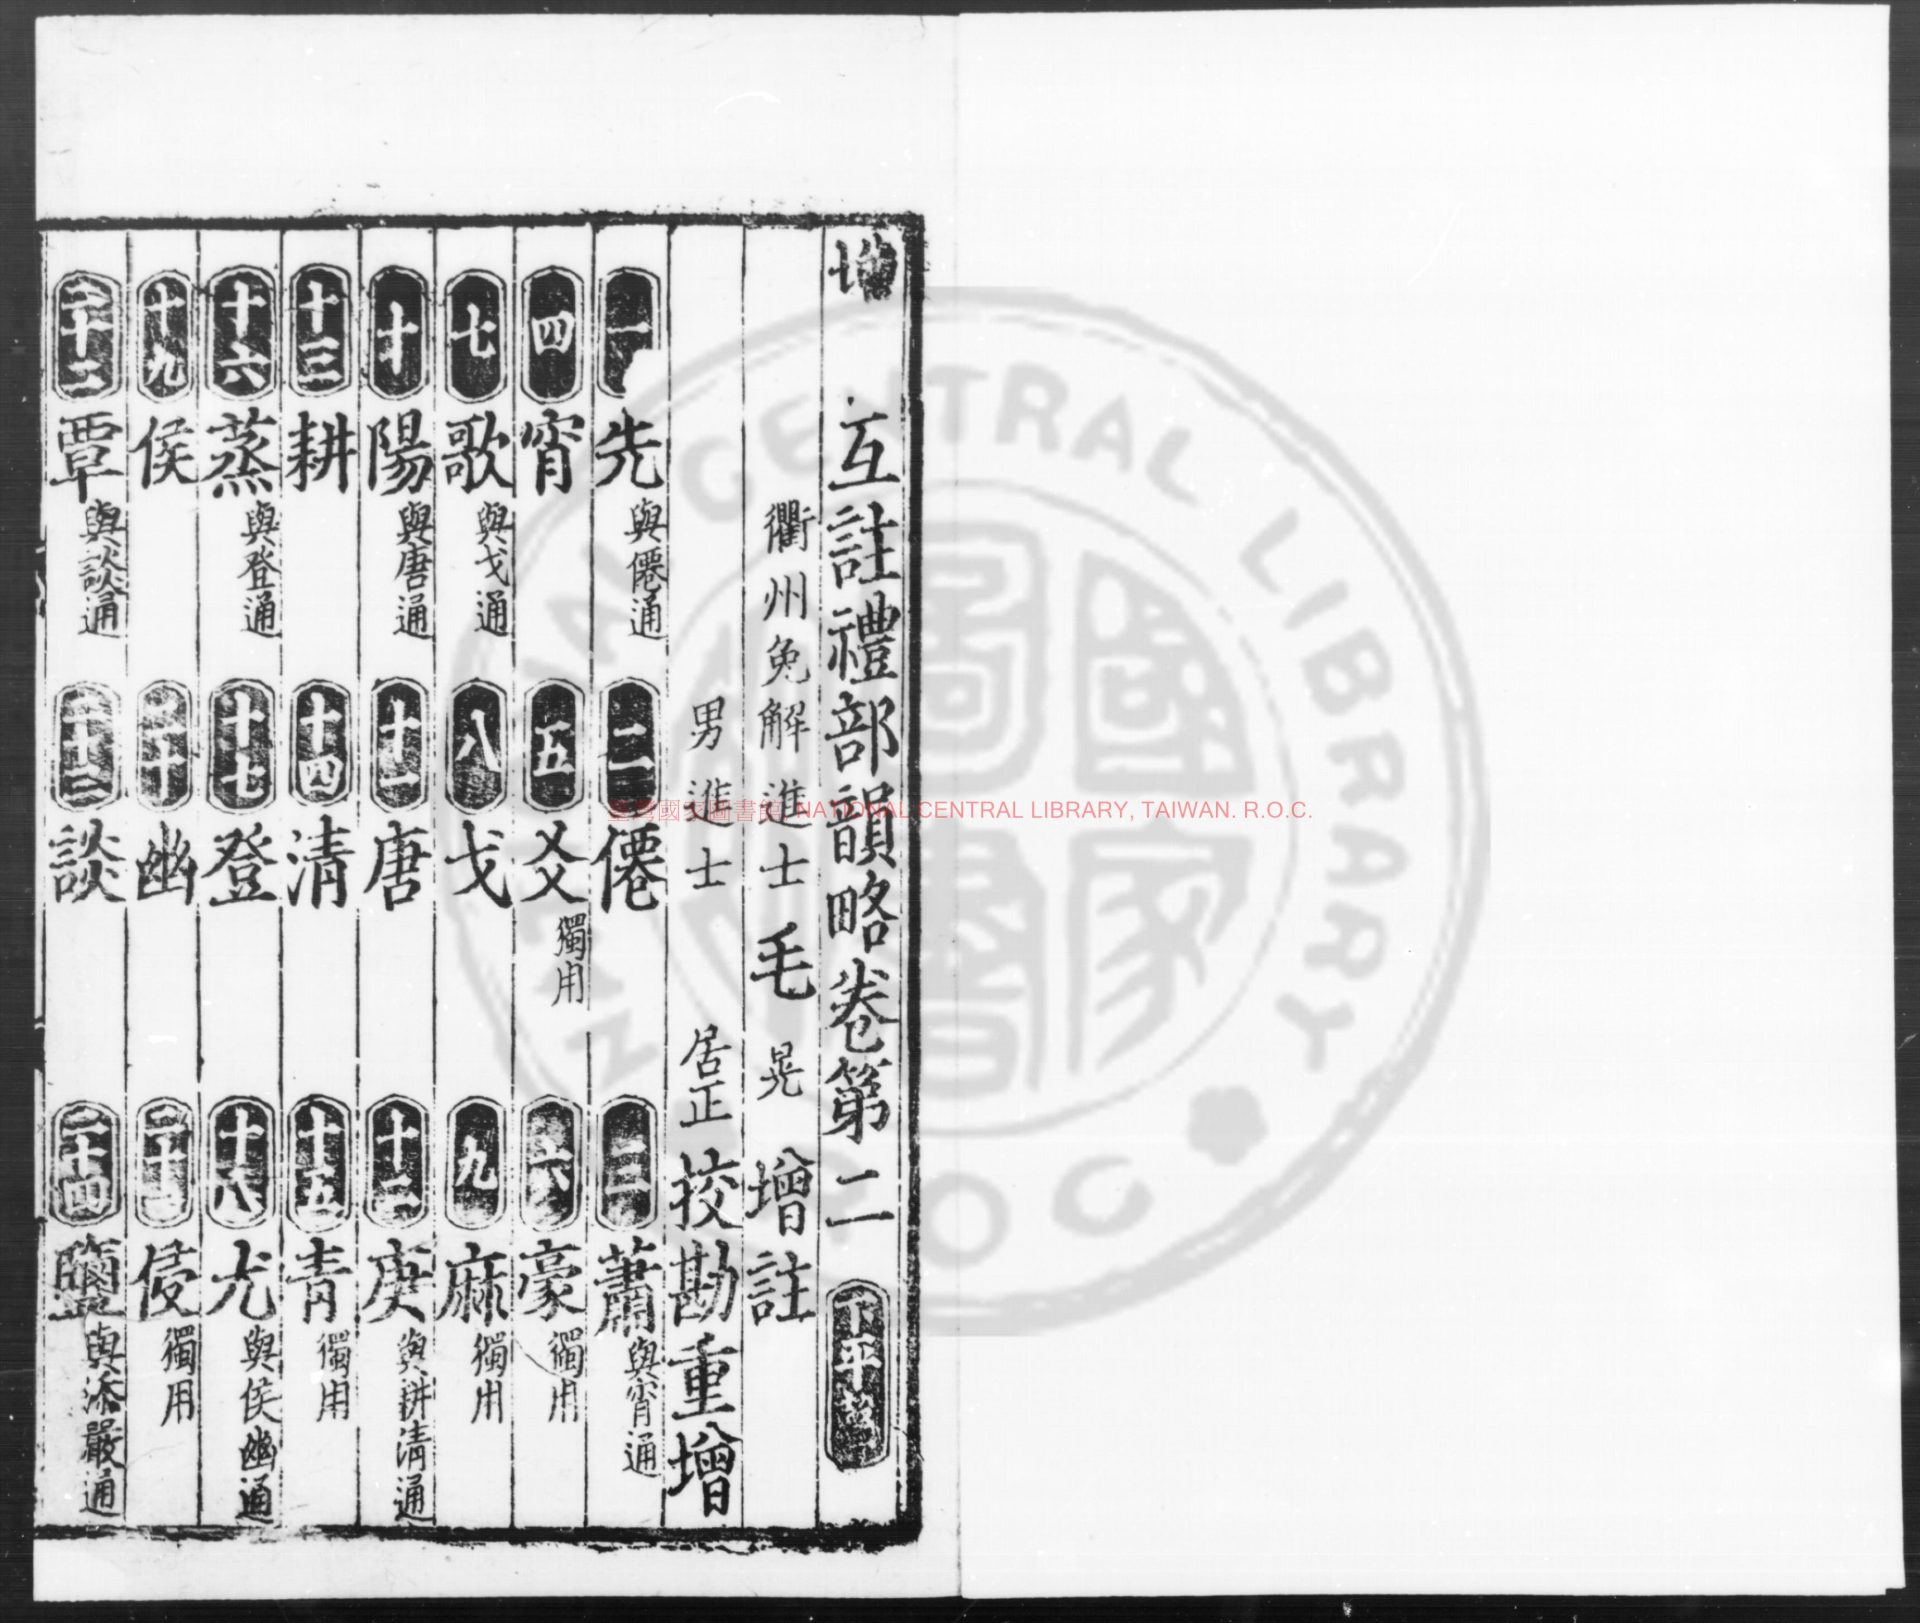 增 互註禮部韻略卷第二 下平聲
衢州免解進士 毛 晃 增註
男進士 居正 挍勘重增
一 先 與僊通 二 僊 三 蕭 與宵通
四 宵 五 爻 獨用 六 豪 獨用
七 歌 與戈通 八 戈 九 麻 獨用
十 陽 與唐通 十一 唐 十二 庚 與耕清通
十三 耕 十四 清 十五 青 獨用
十六 蒸 與登通 十七 登 十八 尤 與侯幽通
十九 侯 二十 幽 二十一 侵 獨用
二十二 覃 與談通 二十三 談 二十四 鹽 與添嚴通
臺灣國家圖書館, NATIONAL CENTRAL LIBRARY, TAIWAN. R.O.C.
NATIONAL CENTRAL LIBRARY
R O C
國家圖書